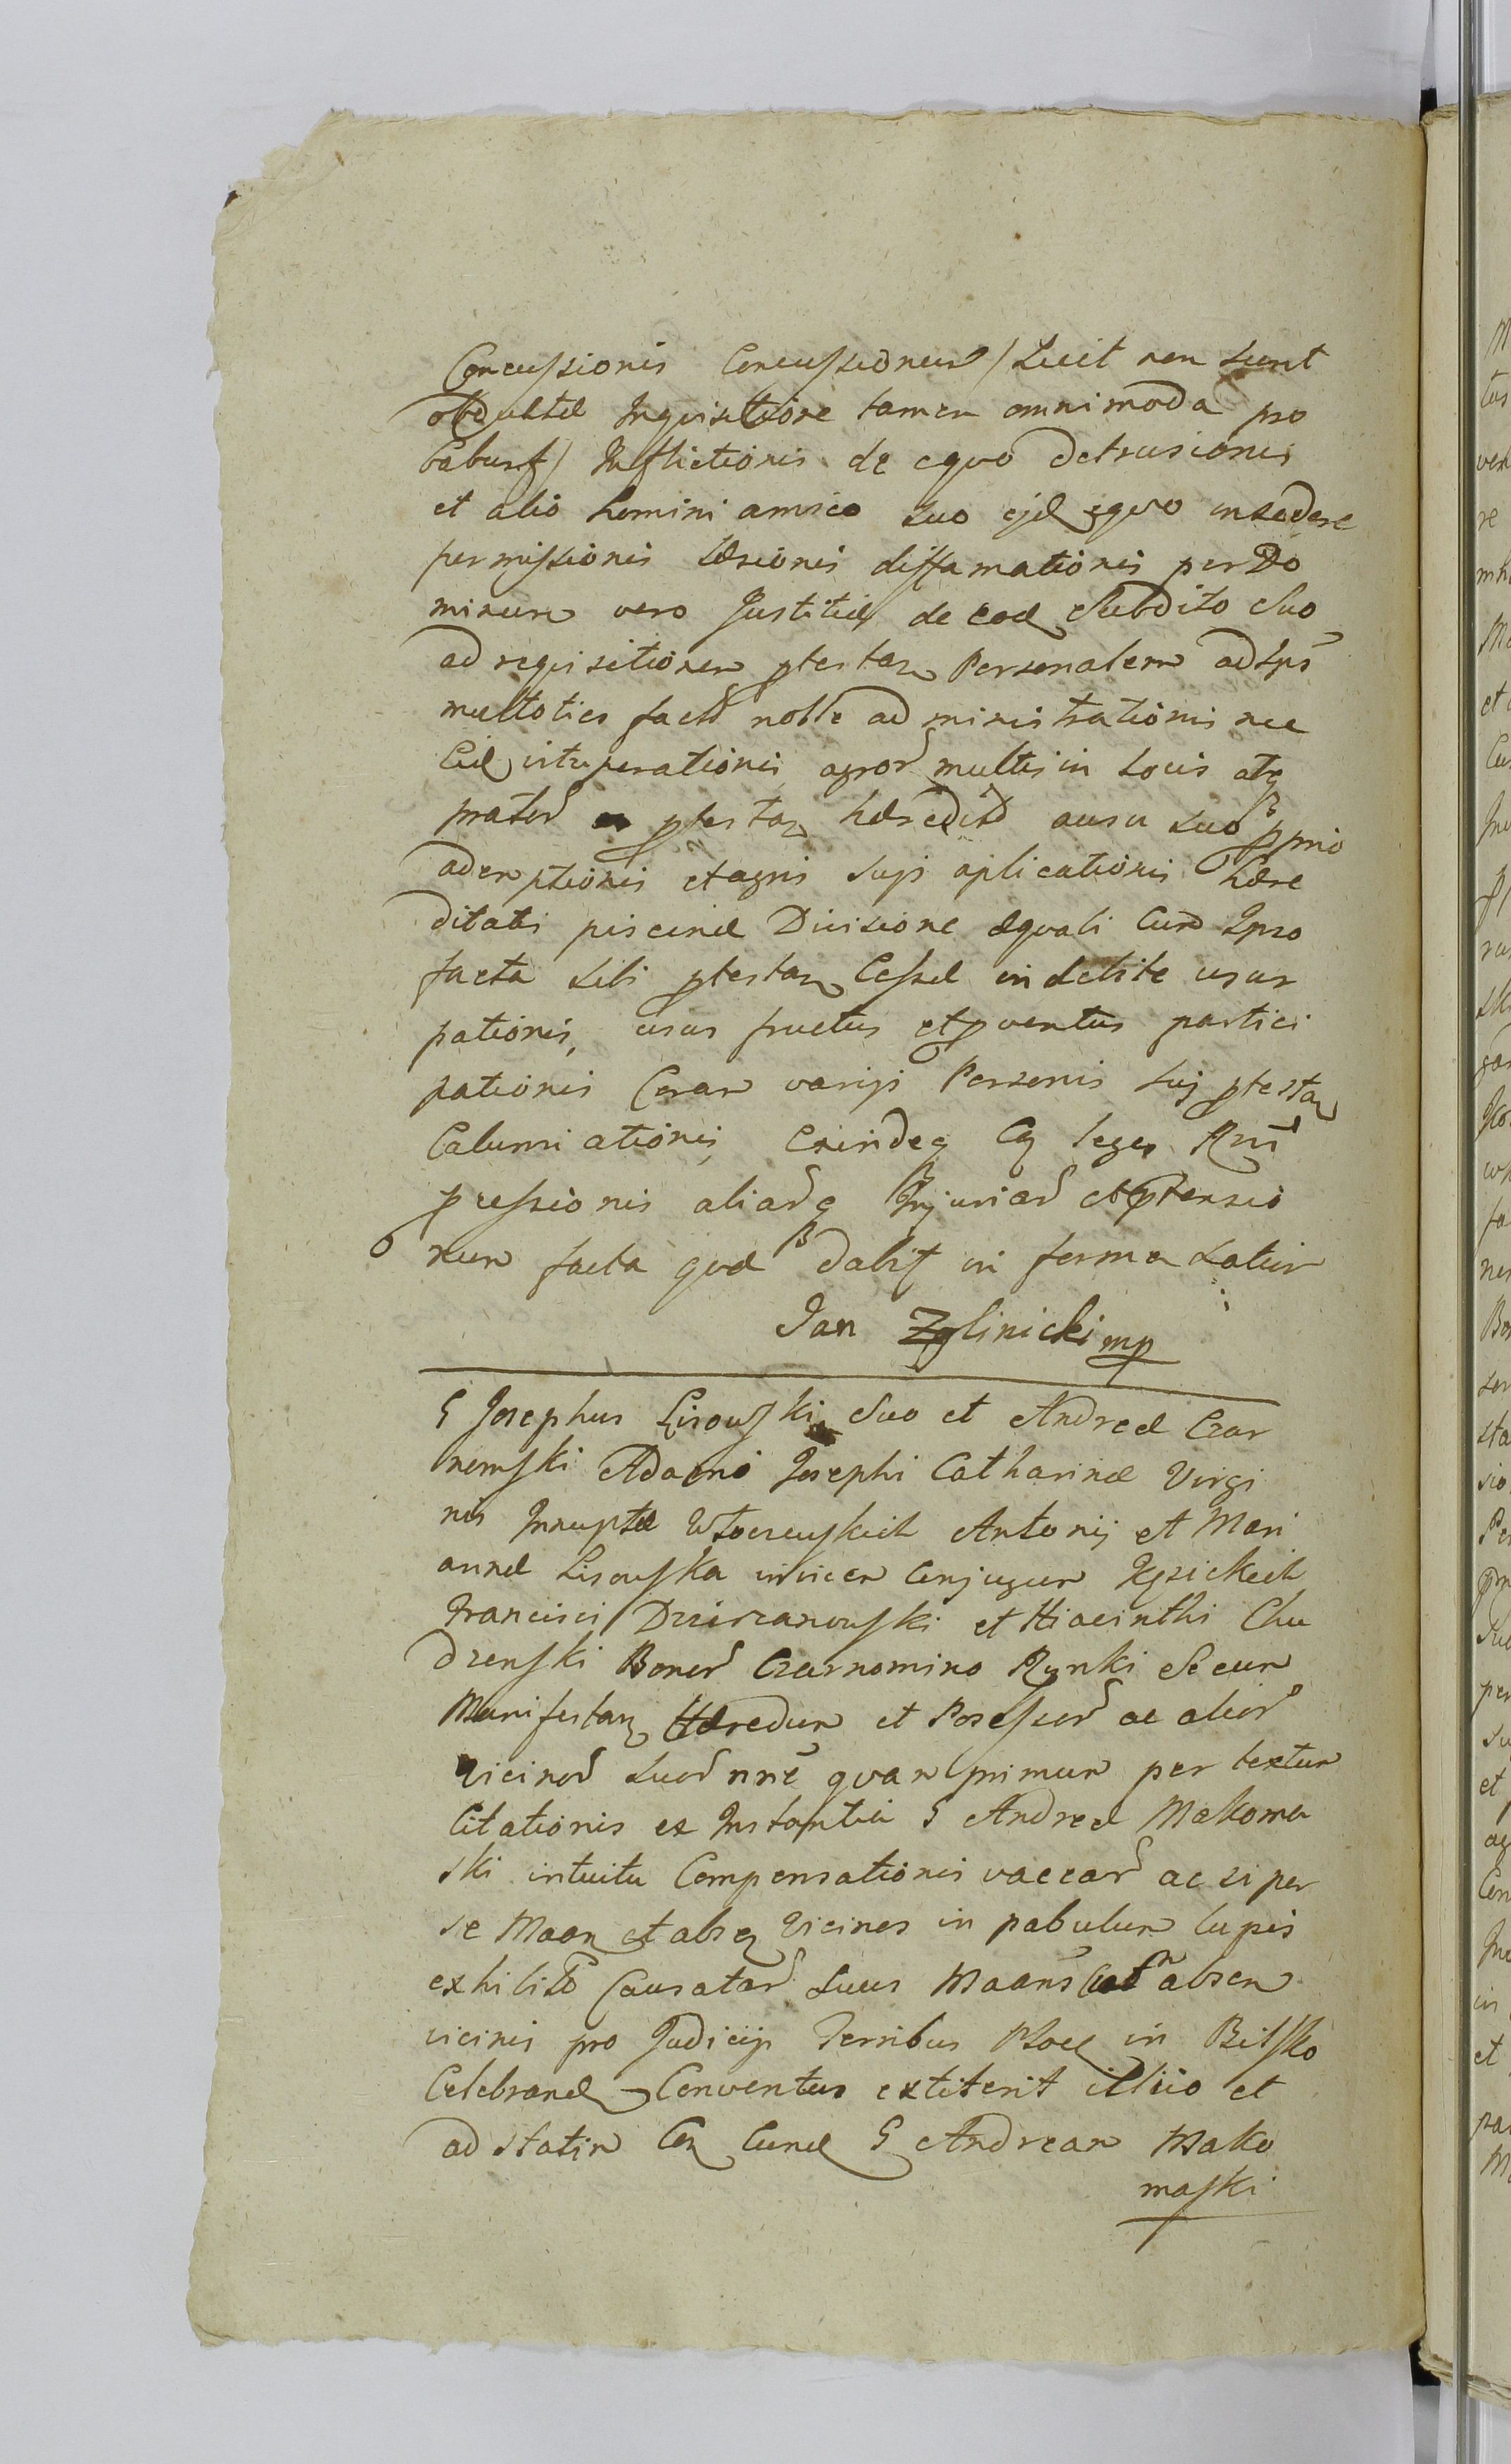 Concussionis Concussionem / Licet non sunt
obductæ Inquisitione tamen omnimoda pro
babunt / Inflictionis de equo detrusionis
et alio homini amico suo ejd equo insedere
permissionis Læsionis diffamationis per Do
minum vero Justitiæ de eod Subdito Suo
ad requisitionem ptestan Personalem ad Ips
multoties fact nolle administrationis nec
vituperationis agror multis in Locis atq
prator ptestan hæredit ausu suo pprio
ademptionis et agris suis aplicationis hære
ditatis piscinæ Divisione æquali cum Ipso
facta sibi ptestan Cessæ indebite usur
pationis, usus fructus et pventus partici
pationis Coram varijs Personis suj ptestan
Calumniationis Exindeq leges Rni
pressionis aliarq Injuriar et ptensio
num facta quæ dabit in forma Latiori
Jan Zglinicki mp
G Josephus Lisowski Suo et Andreæ Czar
nomski Adami Josephi Catharinæ Virgi
nis Innuptæ Antonij et Mari
annæ Lisowska invicem Conjugum
Francisci Dzierzanowski et Hiacinthi Chu
dzenski Bonor Czarnomino Rynki Secum
Manifestan Hæredum et Possessor ac alior
vicinor suor nne quam primum per textum
Citationis ex Instantia G Andreæ Makoma
ski intuitu Compensationis vaccar ac si per
se Maan et absq vicinos in pabulum lupis
exhibit Causatar Suus Maans absen
vicinis pro Judicijs Terribus Ploc in Bilsko
Celebrand Conventus extiterit illico et
ad statim Cum G Andream Mako
maski